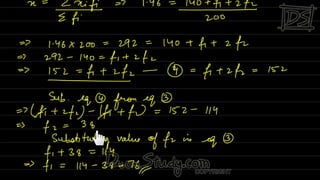 x̄ = Σ xifi / Σ fi => 1.46 = 140 + f1 + 2 f2 / 200
=> 1.46 X 200 = 292 = 140 + f1 + 2 f2
=> 292 - 140 = f1 + 2 f2
=> 152 = f1 + 2 f2 — ④ = f1 + 2 f2 = 152
Sub. eq ④ from eq ③
=> (f1 + 2 f2) - (f1 + f1) = 152 - 114
=> f2 = 38
Substituting value of f2 in eq ③
f1 + 38 = 114
=> f1 = 114 - 38 = 76
Study.com
COPYRIGHT
DS